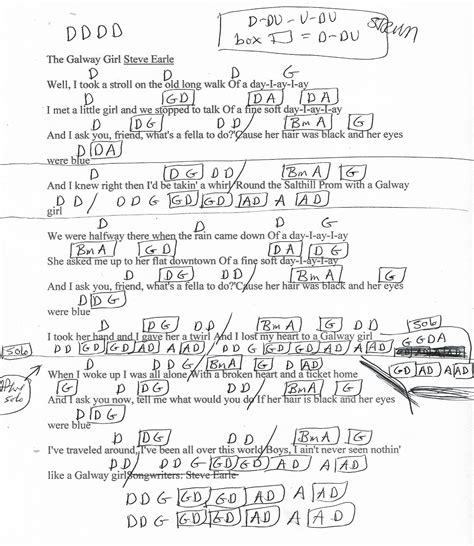 D D D D
D-DU-U-DU strum
box = D-DU
The Galway Girl Steve Earle
D D D G
Well, I took a stroll on the old long walk Of a day-I-ay-I-ay
D GD DA DA
I met a little girl and we stopped to talk Of a fine soft day-I-ay-I-ay
D DG DD / BmA G
And I ask you, friend, what's a fella to do?'Cause her hair was black and her eyes
D DA
were blue
D DG DD / BmA G
And I knew right then I'd be takin' a whirl/'Round the Salthill Prom with a Galway
DD / DDG GD GD AD A AD
girl
D D D G
We were halfway there when the rain came down Of a day-I-ay-I-ay
BmA GD DA DG
She asked me up to her flat downtown Of a fine soft day-I-ay-I-ay
D DG DD / BmA G
And I ask you, friend, what's a fella to do?'Cause her hair was black and her eyes
D DG
were blue
D DG DD BmA G DD Solo
I took her hand and I gave her a twirl And I lost my heart to a Galway girl
Solo DD GD GD AD A AD / DDG GD GD AD A AD GGDA
D DDG / BmA G D AD GD AD A AD
When I woke up I was all alone With a broken heart and a ticket home
solo
G D DG DD / BmA G
And I ask you now, tell me what would you do If her hair is black and her eyes
D DG
were blue
D DG DD / BmA G
I've traveled around, I've been all over this world Boys, I ain't never seen nothin'
DD / DDG GD GD AD A AD
like a Galway girl Songwriters: Steve Earle
DDG GD GD AD A AD
DDG GD GD AD A AD